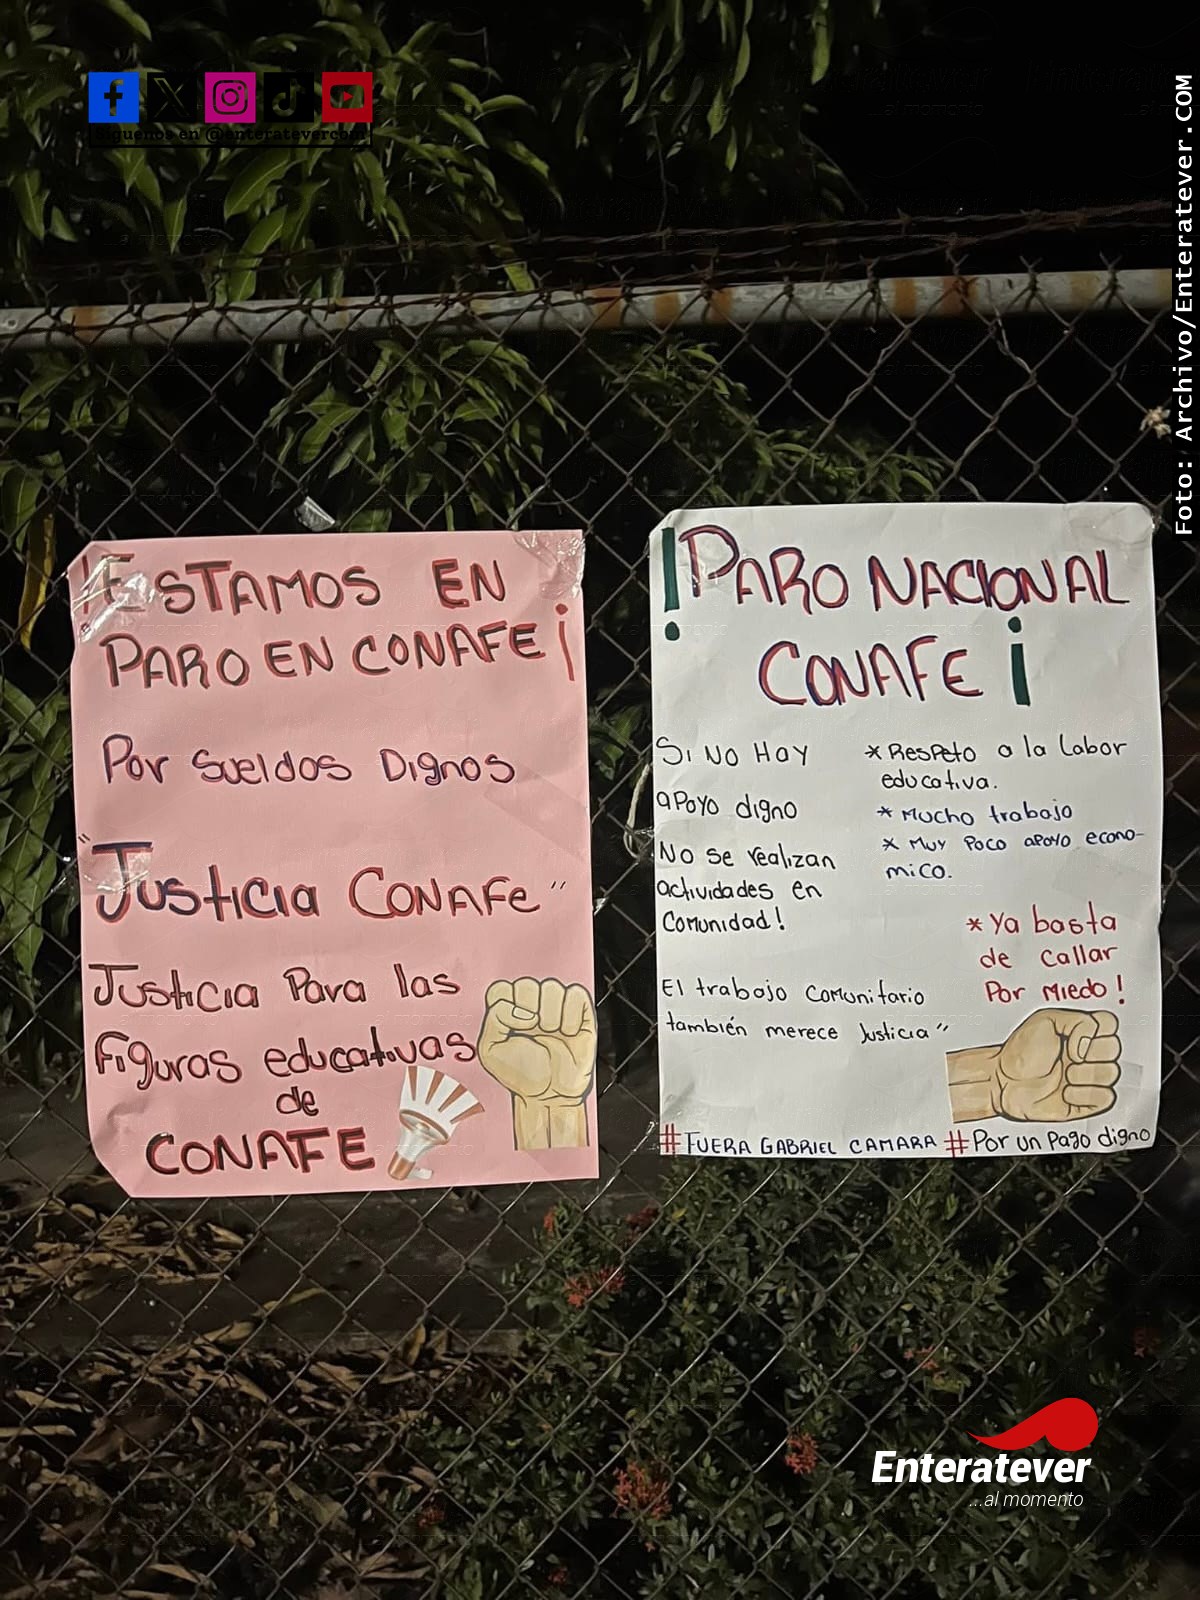 Síguenos en @enteratevercom
Foto: Archivo/Enteratever.COM
!ESTAMOS EN
PARO EN CONAFE¡
Por Sueldos Dignos
"Justicia CONAFE"
Justicia Para las
Figuras educativas
de
CONAFE
!PARO NACIONAL
CONAFE¡
Si No Hay
apoyo digno
No se realizan
actividades en
Comunidad!
El trabajo comunitario
también merece Justicia"
* Respeto a la labor
educativa.
* Mucho trabajo
* Muy Poco apoyo econo-
mico.
* Ya basta
de callar
Por Miedo!
#FUERA GABRIEL CAMARA #Por un Pago digno
Enteratever
...al momento